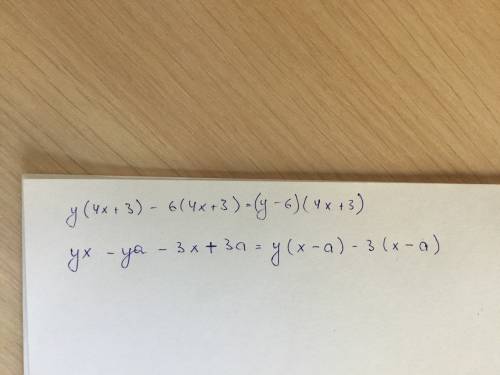 y(4x+3) - 6(4x+3)=(y-6)(4x+3)
yx - ya - 3x + 3a = y(x-a) - 3(x-a)